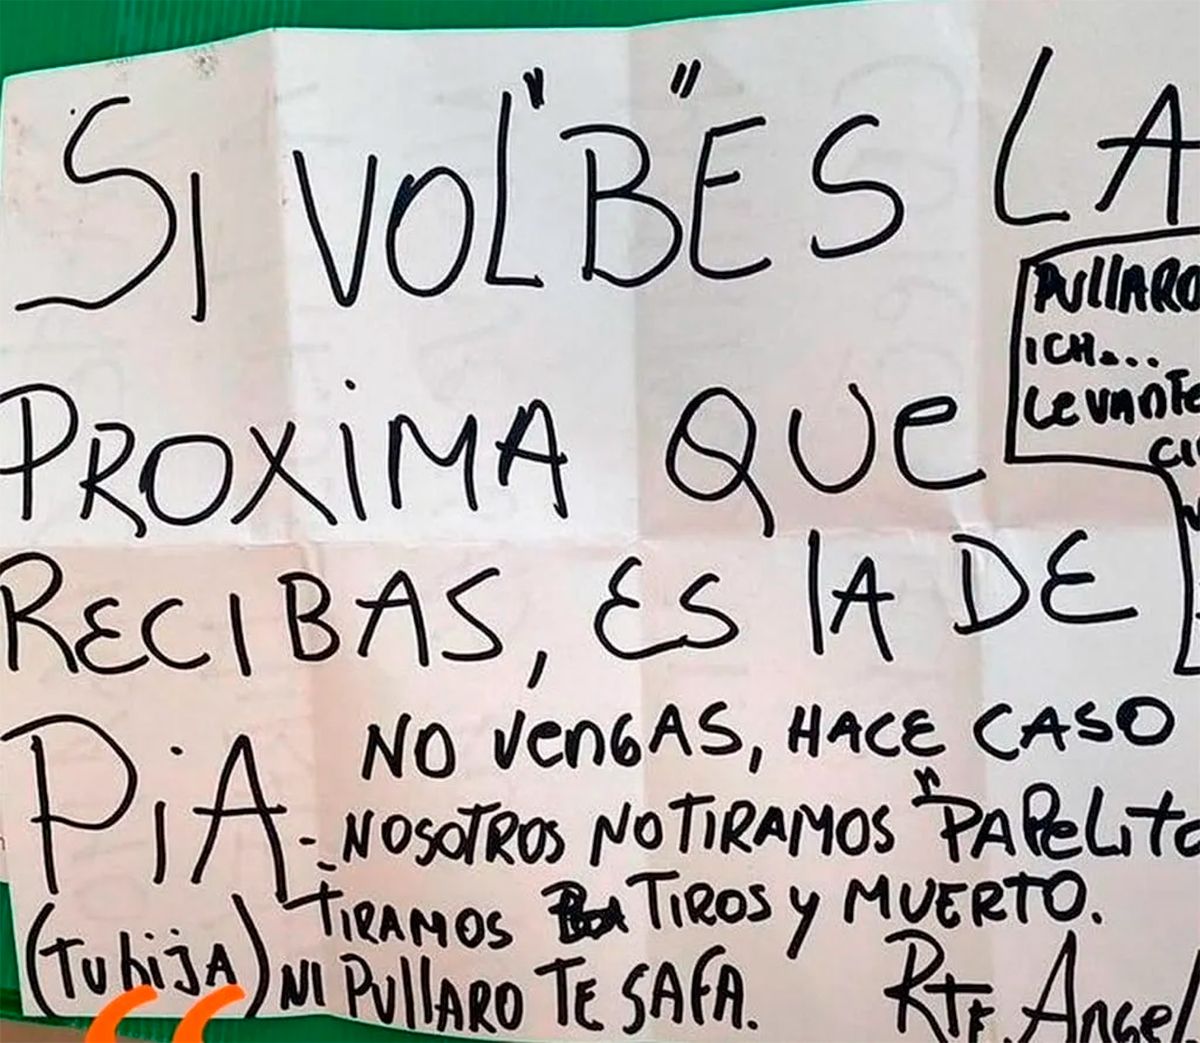 SI VOL"B"ES LA
PROXIMA QUE
RECIBAS, ES LA DE
PIA
(TU hijA)
PULLARO
ICH...
LEVANTE
NO VENGAS, HACE CASO
- NOSOTROS NO TIRAMOS "PAPELITO
- TIRAMOS TIROS Y MUERTO.
NI PULLARO TE SAFA.
RTE. Angel